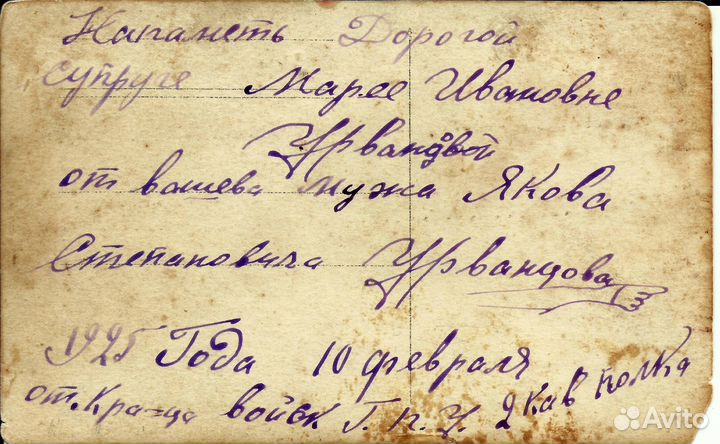 Напаметь Дорогой
супруге Марее Ивановне
Урванцовой
от вашева мужа Якова
Степановича Урванцова
1925 Года 10 февраля
от Кра-ца войск Г.П.У. 2 кав полка
Avito